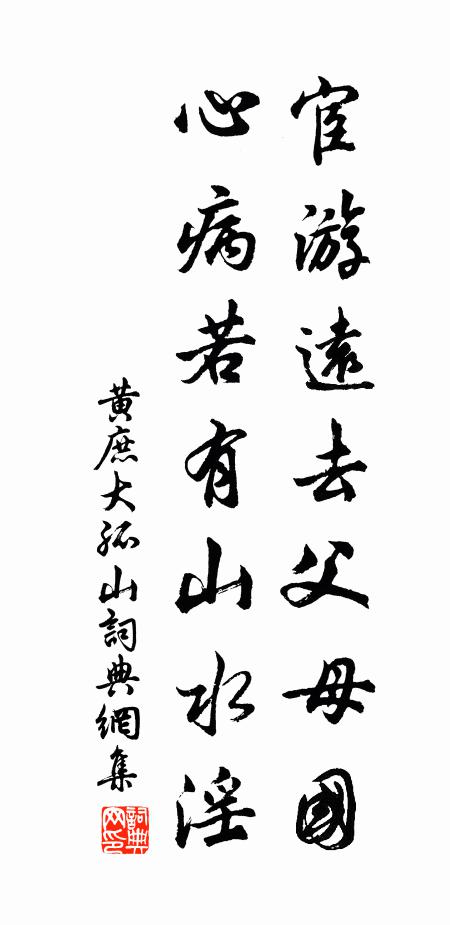 宦游遠去父母國
心病若有山水淫
黃庶大孤山詞典網集
詞典网印